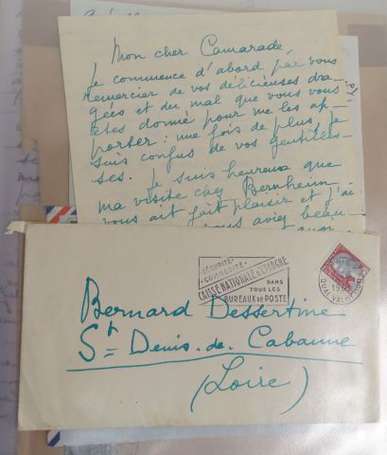 Mon cher Camarade,
je commence d'abord par vous
remercier de vos délicieuses dra-
gées et du mal que vous vous
êtes donné pour me les ap-
porter : une fois de plus, je
suis confus de vos gentilles-
ses. Je suis heureux que
ma visite chez Bernheim
vous ait fait plaisir et j'ai
aviez beau-
SÉCURITÉ
COMMODITÉ
CAISSE NATIONALE D'ÉPARGNE
DANS
TOUS LES
BUREAUX DE POSTE
Bernard Dessertine
St = Denis. de. Cabanne
(Loire)